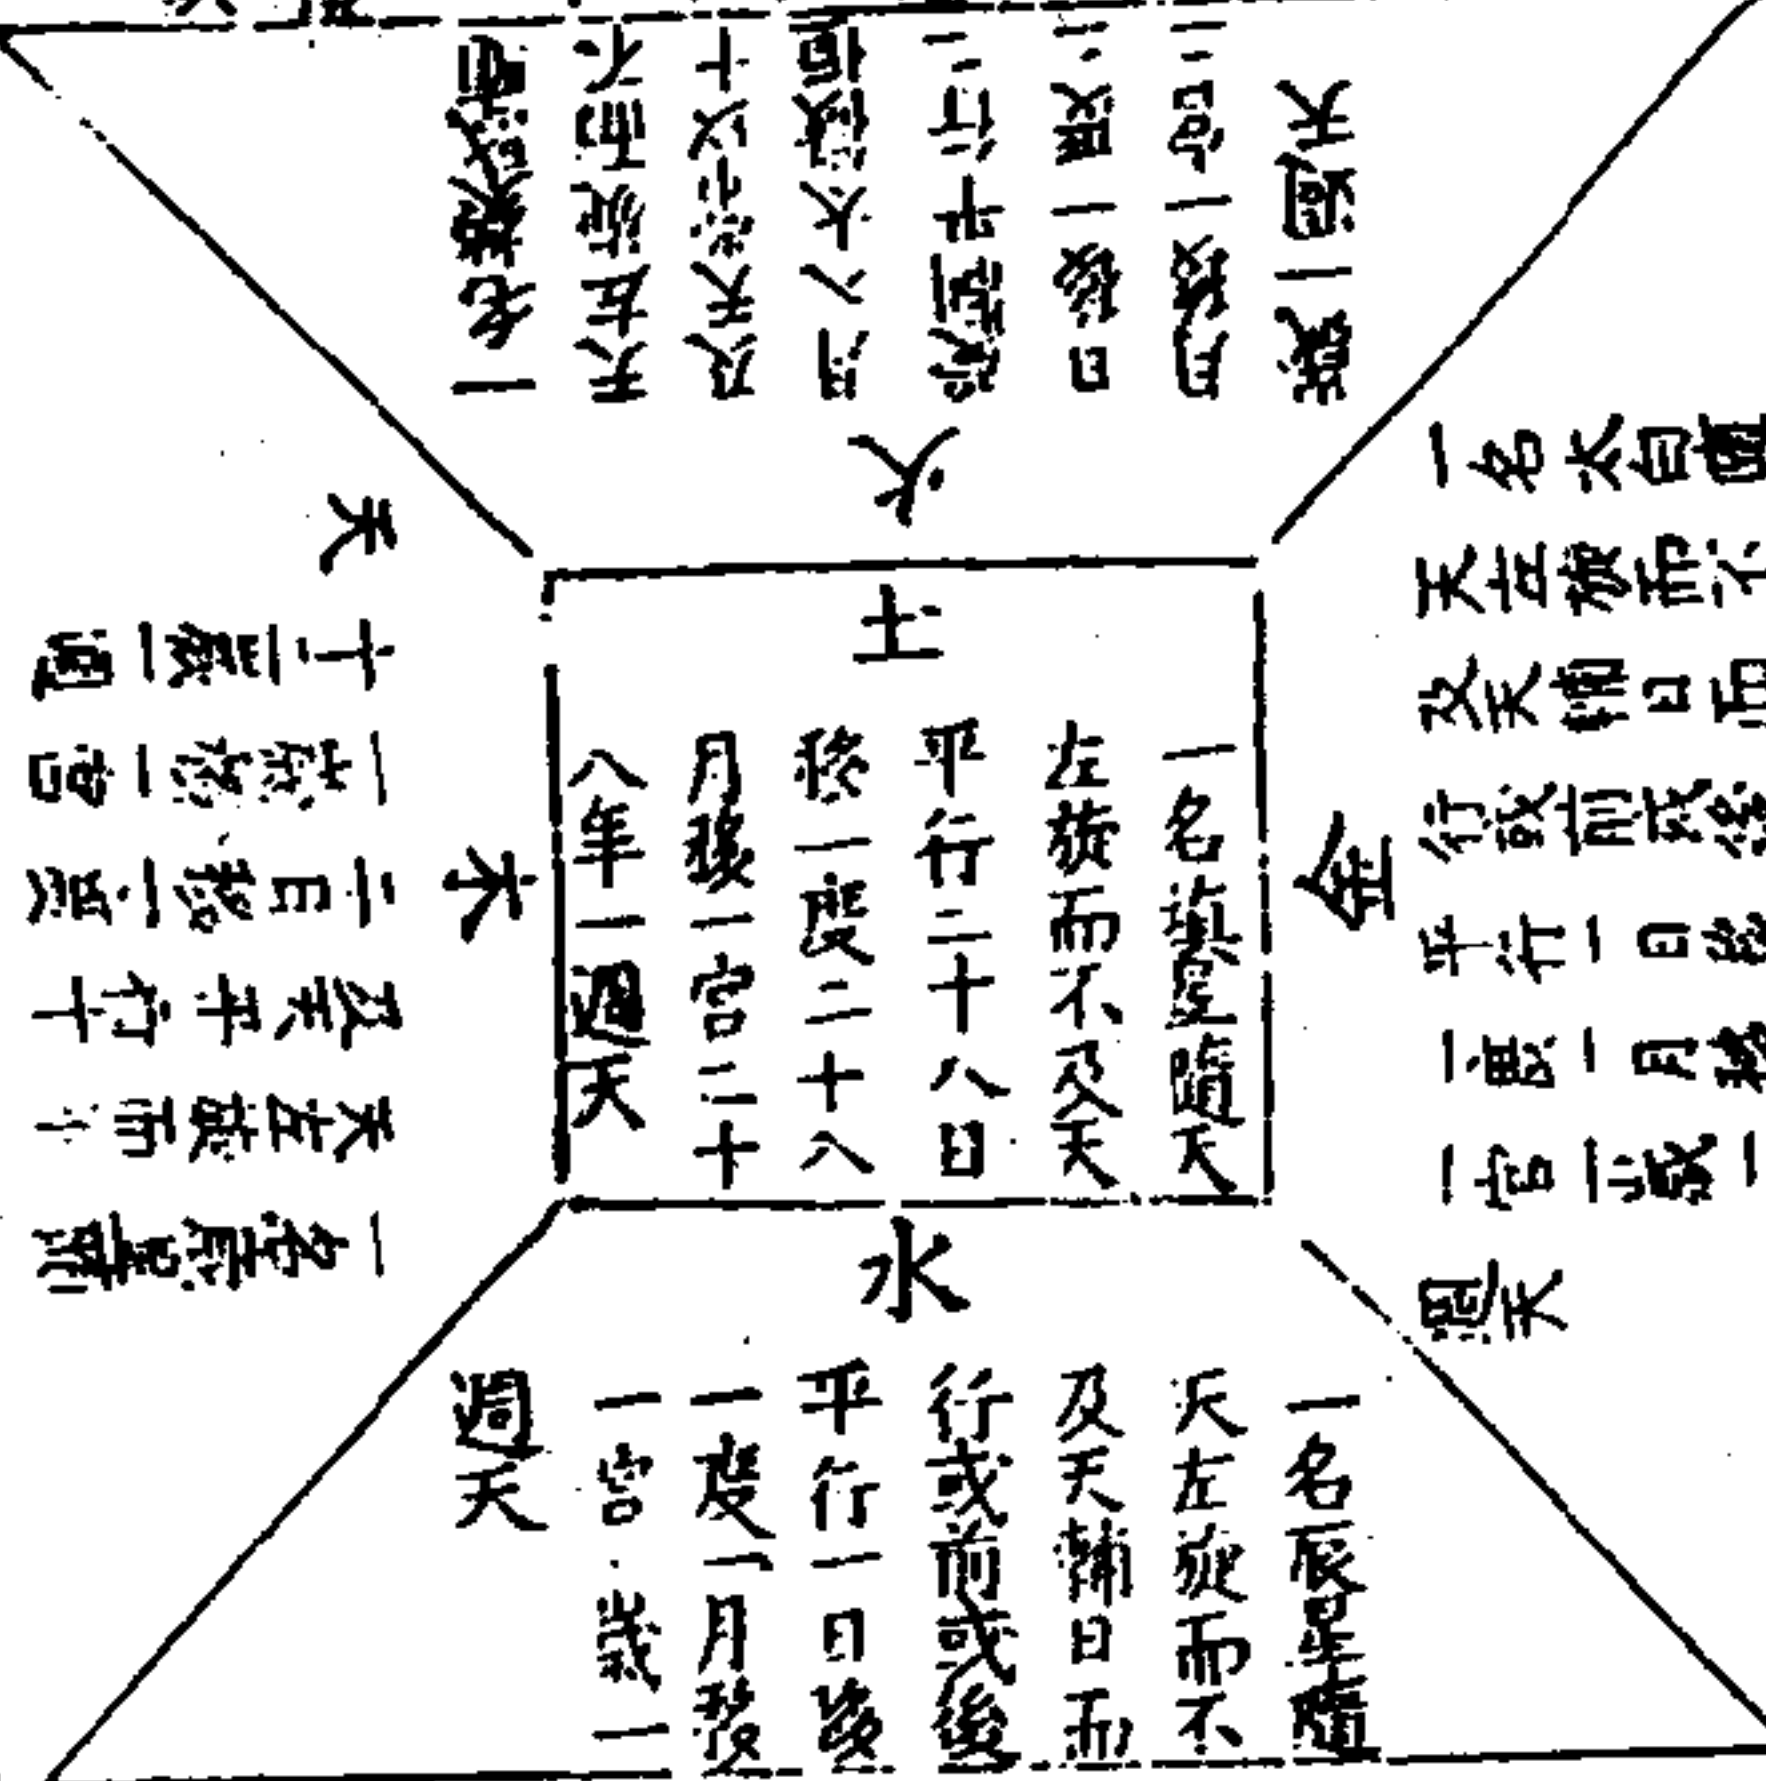 火
一名熒惑隨
天左旋而不
及天常以十
月入太微
受制平行二
日移一度二
月移一宮二
歲一週天
土
一名填星隨天
左旋而不及天
平行二十八日
移一度二十八
月移一宮二十
八年一週天
金
一名太白隨
天左旋而不
及天輔日而
行或前或後
平行一日移
一度一月移
一宮一歲一
週天
木
一名歲星隨
天左旋而不
及天平行十
二日移一度
一歲移一宮
十二歲一週
天
水
一名辰星隨
天左旋而不
及天輔日而
行或前或後
平行一日移
一度一月移
一宮一歲一
週天